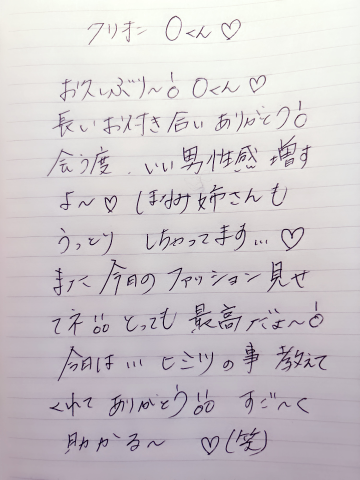 クリオン Oくん♡
お久しぶり〜! Oくん♡
長いお付き合いありがとう!
会う度、いい男性感増す
よ〜♡ ほなみ姉さんも
うっとり しちゃってます…♡
また今日のファッション見せ
てネ!! とっても最高だよ〜!
今日は… ヒミツの事教えて
くれてありがとう!! すご〜く
助かる〜 ♡(笑)